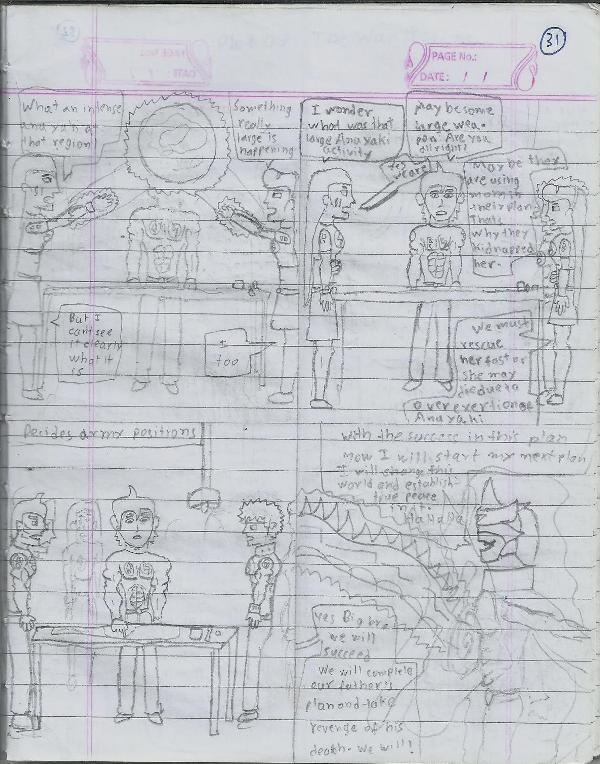 31
PAGE No.:
DATE: / /
What an intense
Anayaki
that region
Something
really
large is
happening
But I
cant see
it clearly
what it
is
I
too
I wonder
what was that
large Anayaki
activity
May be some
large wea-
pon. Are you
allright?
Yes
Maybe they
are using
their plan.
Thats
why they
kidnapped
her.
We must
rescue
her fast or
she may
die due to
overexertion of
Anayaki
Decides army positions
With the success in this plan
Now I will start my next plan
I will change this
world and establish
true peace
in it.
HaHaHa
Yes Big bro
we will
succeed
We will complete
our father's
plan and take
revenge of his
death. We will!